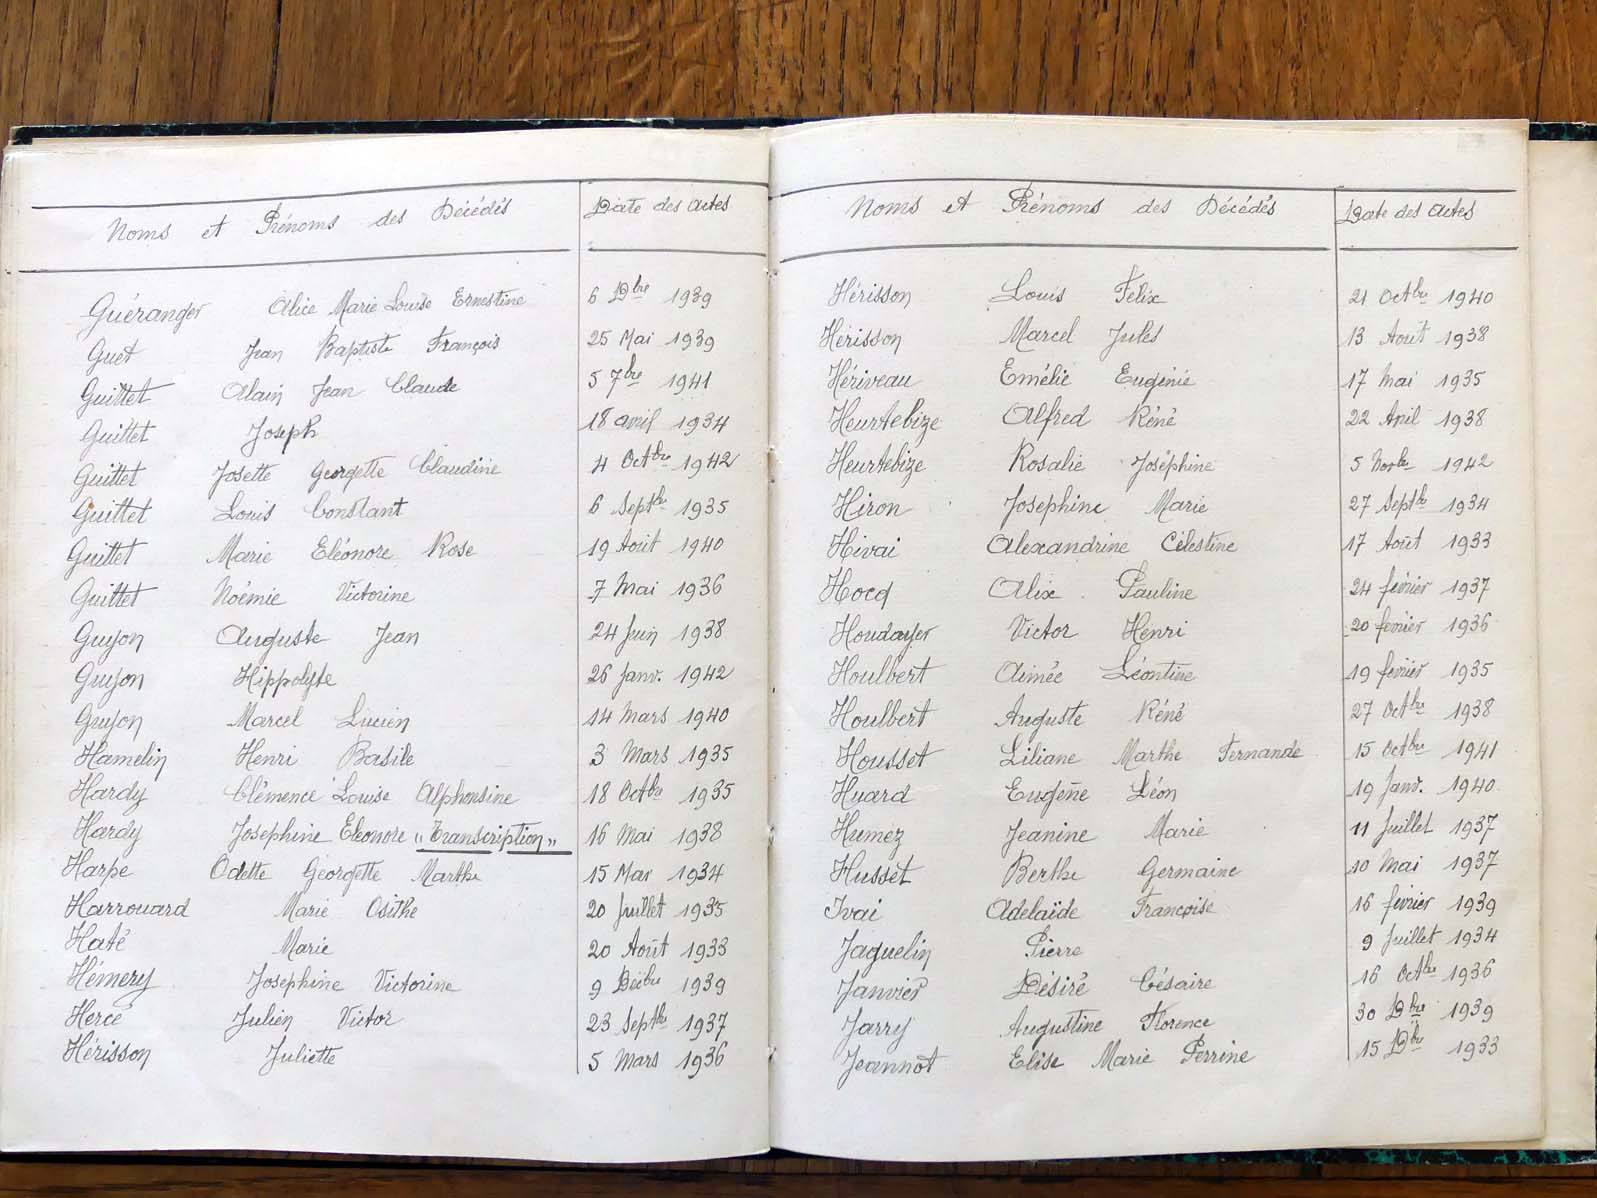 Noms et Prénoms des Décédés Date des actes
Guéranger Alice Marie Louise Ernestine 6 Dbre 1939
Guet Jean Baptiste François 25 Mai 1939
Guittet Alain Jean Claude 5 7bre 1941
Guittet Joseph 18 avril 1934
Guittet Josette Georgette Claudine 4 Octbre 1942
Guittet Louis Constant 6 Septbre 1935
Guittet Marie Eléonore Rose 19 Août 1940
Guittet Noémie Victorine 7 Mai 1936
Guyon Auguste Jean 24 Juin 1938
Guyon Hippolyte 26 Janv. 1942
Guyon Marcel Lucien 14 Mars 1940
Hamelin Henri Basile 3 Mars 1935
Hardy Clémence Louise Alphonsine 18 Octbre 1935
Hardy Josephine Eleonore "Transcription" 16 Mai 1938
Harpe Odette Georgette Marthe 15 Mar 1934
Harrouard Marie Osithe 20 Juillet 1935
Haté Marie 20 Août 1933
Hémery Josephine Victorine 9 Décbre 1939
Hercé Julien Victor 23 Septbre 1937
Hérisson Juliette 5 Mars 1936
Noms et Prénoms des Décédés Date des actes
Hérisson Louis Félix 21 Octbre 1940
Hérisson Marcel Jules 13 Août 1938
Hériveau Emélie Eugénie 17 Mai 1935
Heurtebize Alfred Réné 22 Avril 1938
Heurtebize Rosalie Joséphine 5 Novbre 1942
Hiron Josephine Marie 27 Septbre 1934
Hivai Alexandrine Célestine 17 Août 1933
Hocq Alix Pauline 24 février 1937
Houdayer Victor Henri 20 février 1936
Houlbert Aimée Léontine 19 février 1935
Houlbert Auguste Réné 27 Octbre 1938
Housset Liliane Marthe Fernande 15 Octbre 1941
Huard Eugène Léon 19 Janv. 1940
Humez Jeanine Marie 11 Juillet 1937
Husset Berthe Germaine 10 Mai 1937
Ivai Adelaïde Françoise 16 février 1939
Jaquelin Pierre 9 Juillet 1934
Janvier Désiré Césaire 16 Octbre 1936
Jarry Augustine Florence 30 Dbre 1939
Jeannot Elise Marie Perrine 15 Dbre 1933